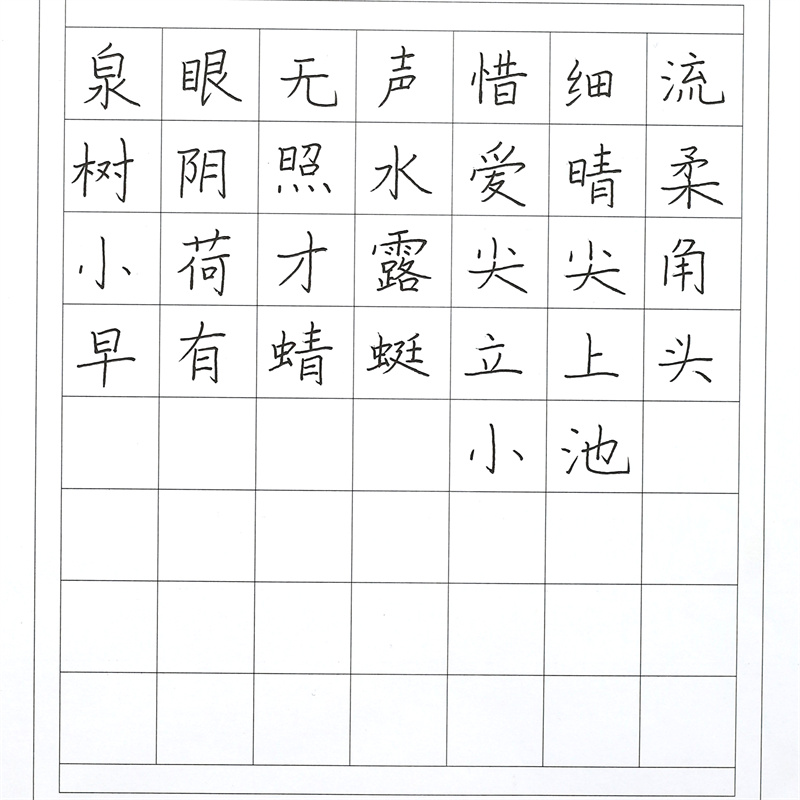 泉眼无声惜细流
树阴照水爱晴柔
小荷才露尖尖角
早有蜻蜓立上头
小池